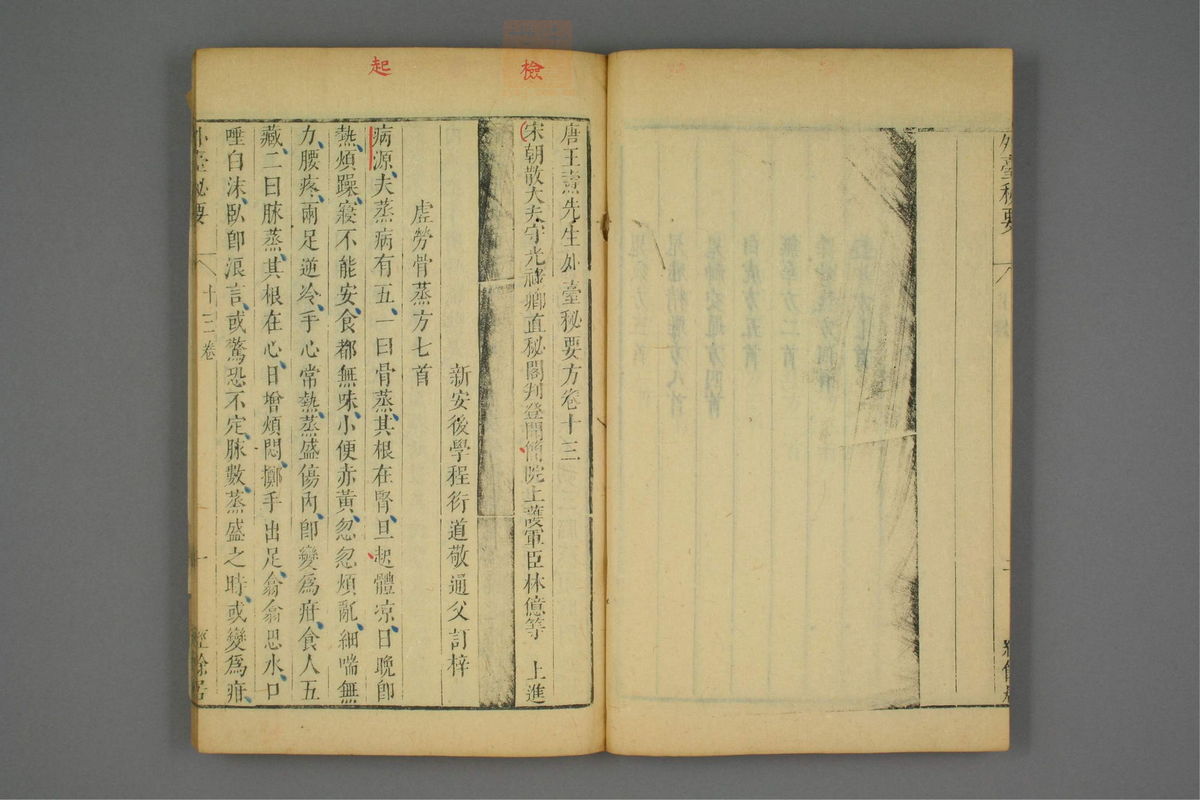 外臺秘要
經餘居
檢
起
唐王燾先生外臺秘要方卷十三
宋朝散大夫守光祿卿直秘閣判登聞簡院上護軍臣林億等 上進
新安後學程衍道敬通父訂梓
虛勞骨蒸方七首
病源夫蒸病有五一曰骨蒸其根在腎旦起體凉日晚卽
熱煩躁寢不能安食都無味小便赤黃忽忽煩亂細喘無
力腰疼兩足逆冷手心常熱蒸盛傷內卽變爲疳食人五
藏二曰脉蒸其根在心日增煩悶擲手出足翕翕思水口
唾白沫臥卽浪言或驚恐不定脉數蒸盛之時或變爲疳
外臺秘要
十三卷
一
經餘居